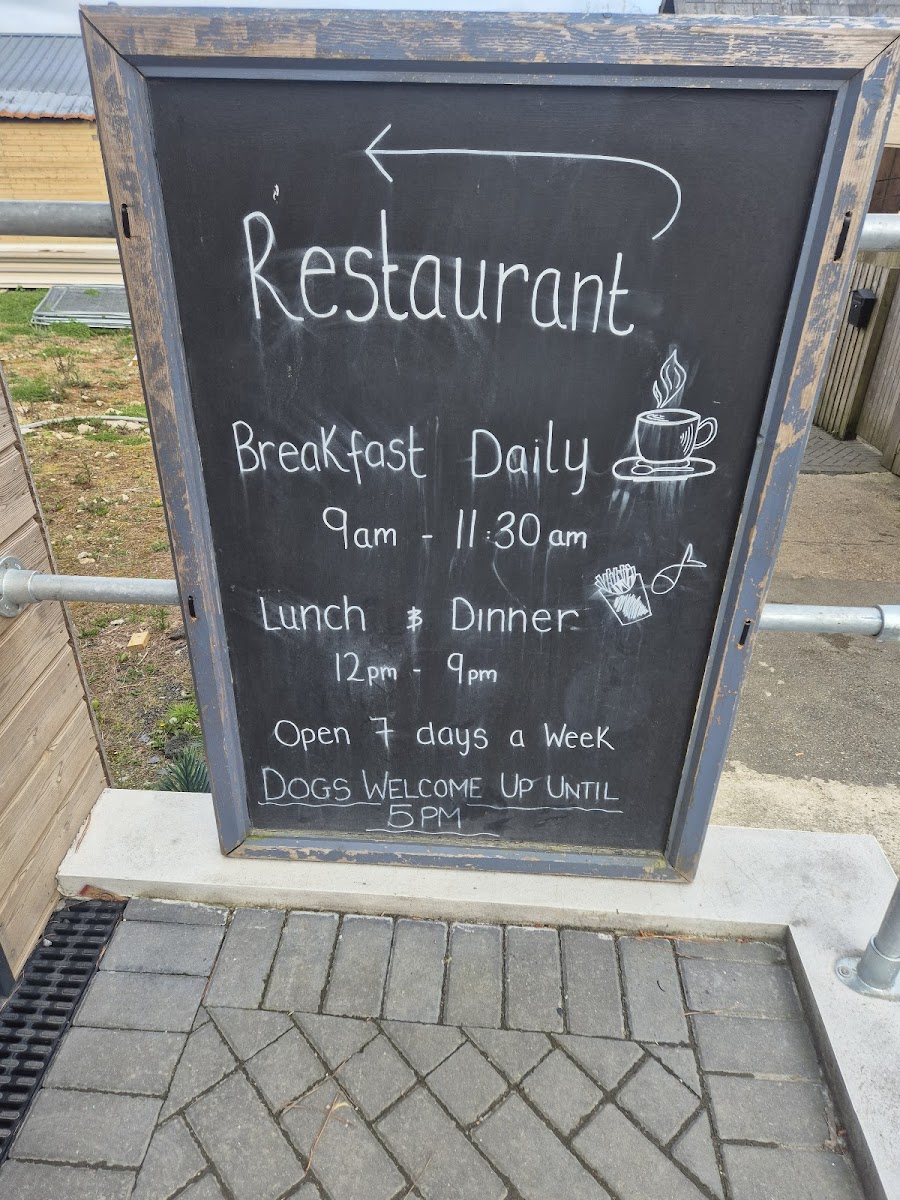 Restaurant
Breakfast Daily
9am - 11:30am
Lunch & Dinner
12pm - 9pm
Open 7 days a Week
DOGS WELCOME UP UNTIL
5PM